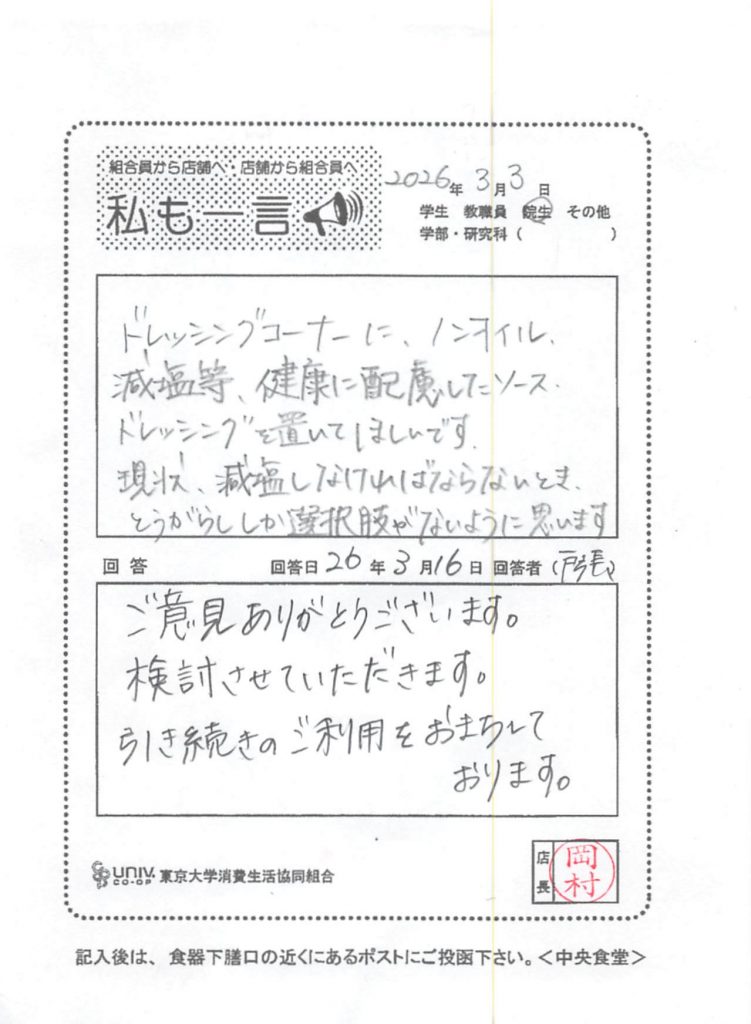 組合員から店舗へ・店舗から組合員へ
私も一言
2026年 3月 3日
学生 教職員 院生 その他
学部・研究科（ ）
ドレッシングコーナーに、ノンオイル、
減塩等、健康に配慮したソース・
ドレッシングを置いてほしいです。
現状、減塩しなければならないとき、
とうがらししか選択肢がないように思います
回答 回答日 26年 3月16日 回答者（戸張）
ご意見ありがとうございます。
検討させていただきます。
引き続きのご利用をおまちして
おります。
UNIV. CO-OP 東京大学消費生活協同組合
店長 岡村
記入後は、食器下膳口の近くにあるポストにご投函下さい。＜中央食堂＞